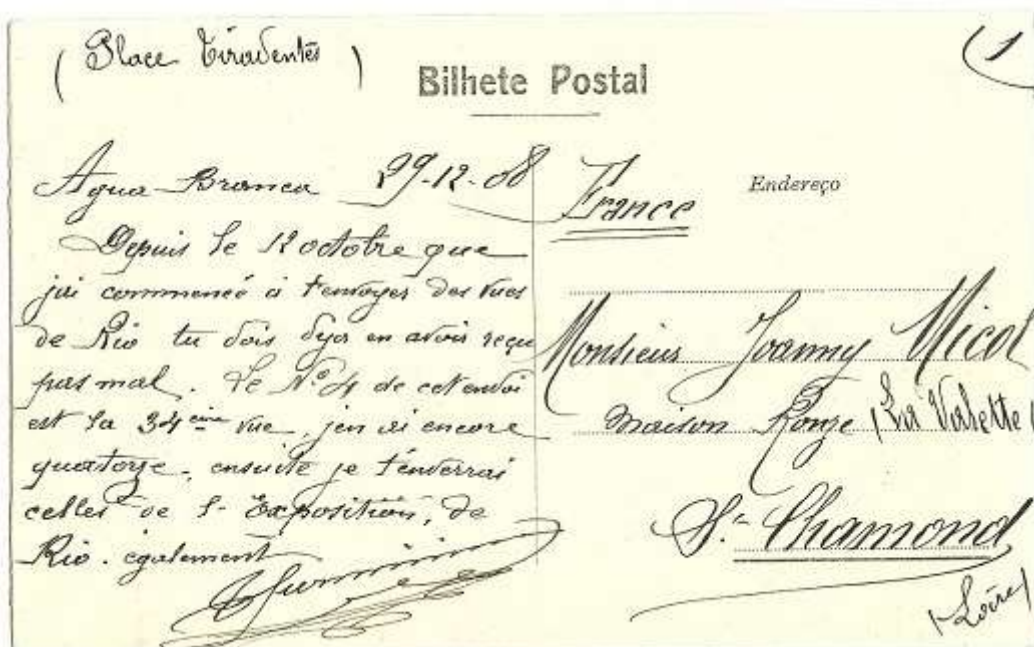 ( Place Tiradentes )
(1
Bilhete Postal
Agua Branca 29-12-08
Depuis le 12 octobre que
j'ai commencé à t'envoyer des vues
de Rio tu dois deja en avoir reçu
pas mal. Le Nº 4 de cet envoi
est la 34eme vue, j'en ai encore
quatorze, ensuite je t'enverrai
celles de l'Exposition, de
Rio. egalement
France
Endereço
Monsieur Joanny Micol
maison Ronze (La Valette)
St Chamond
(Loire)